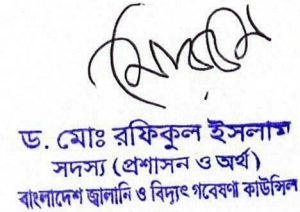 ড. মোঃ রফিকুল ইসলাম
সদস্য (প্রশাসন ও অর্থ)
বাংলাদেশ জ্বালানি ও বিদ্যুৎ গবেষণা কাউন্সিল